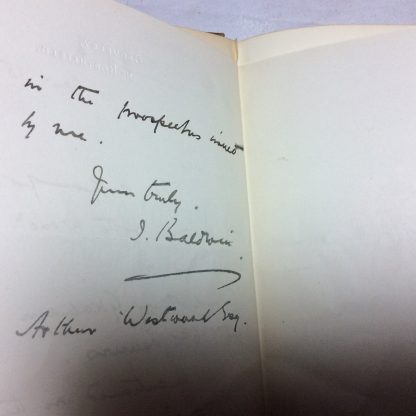 in the prospectus issued
by me.
Yours truly.
J. Baldwin.
Arthur Westwood Esq.